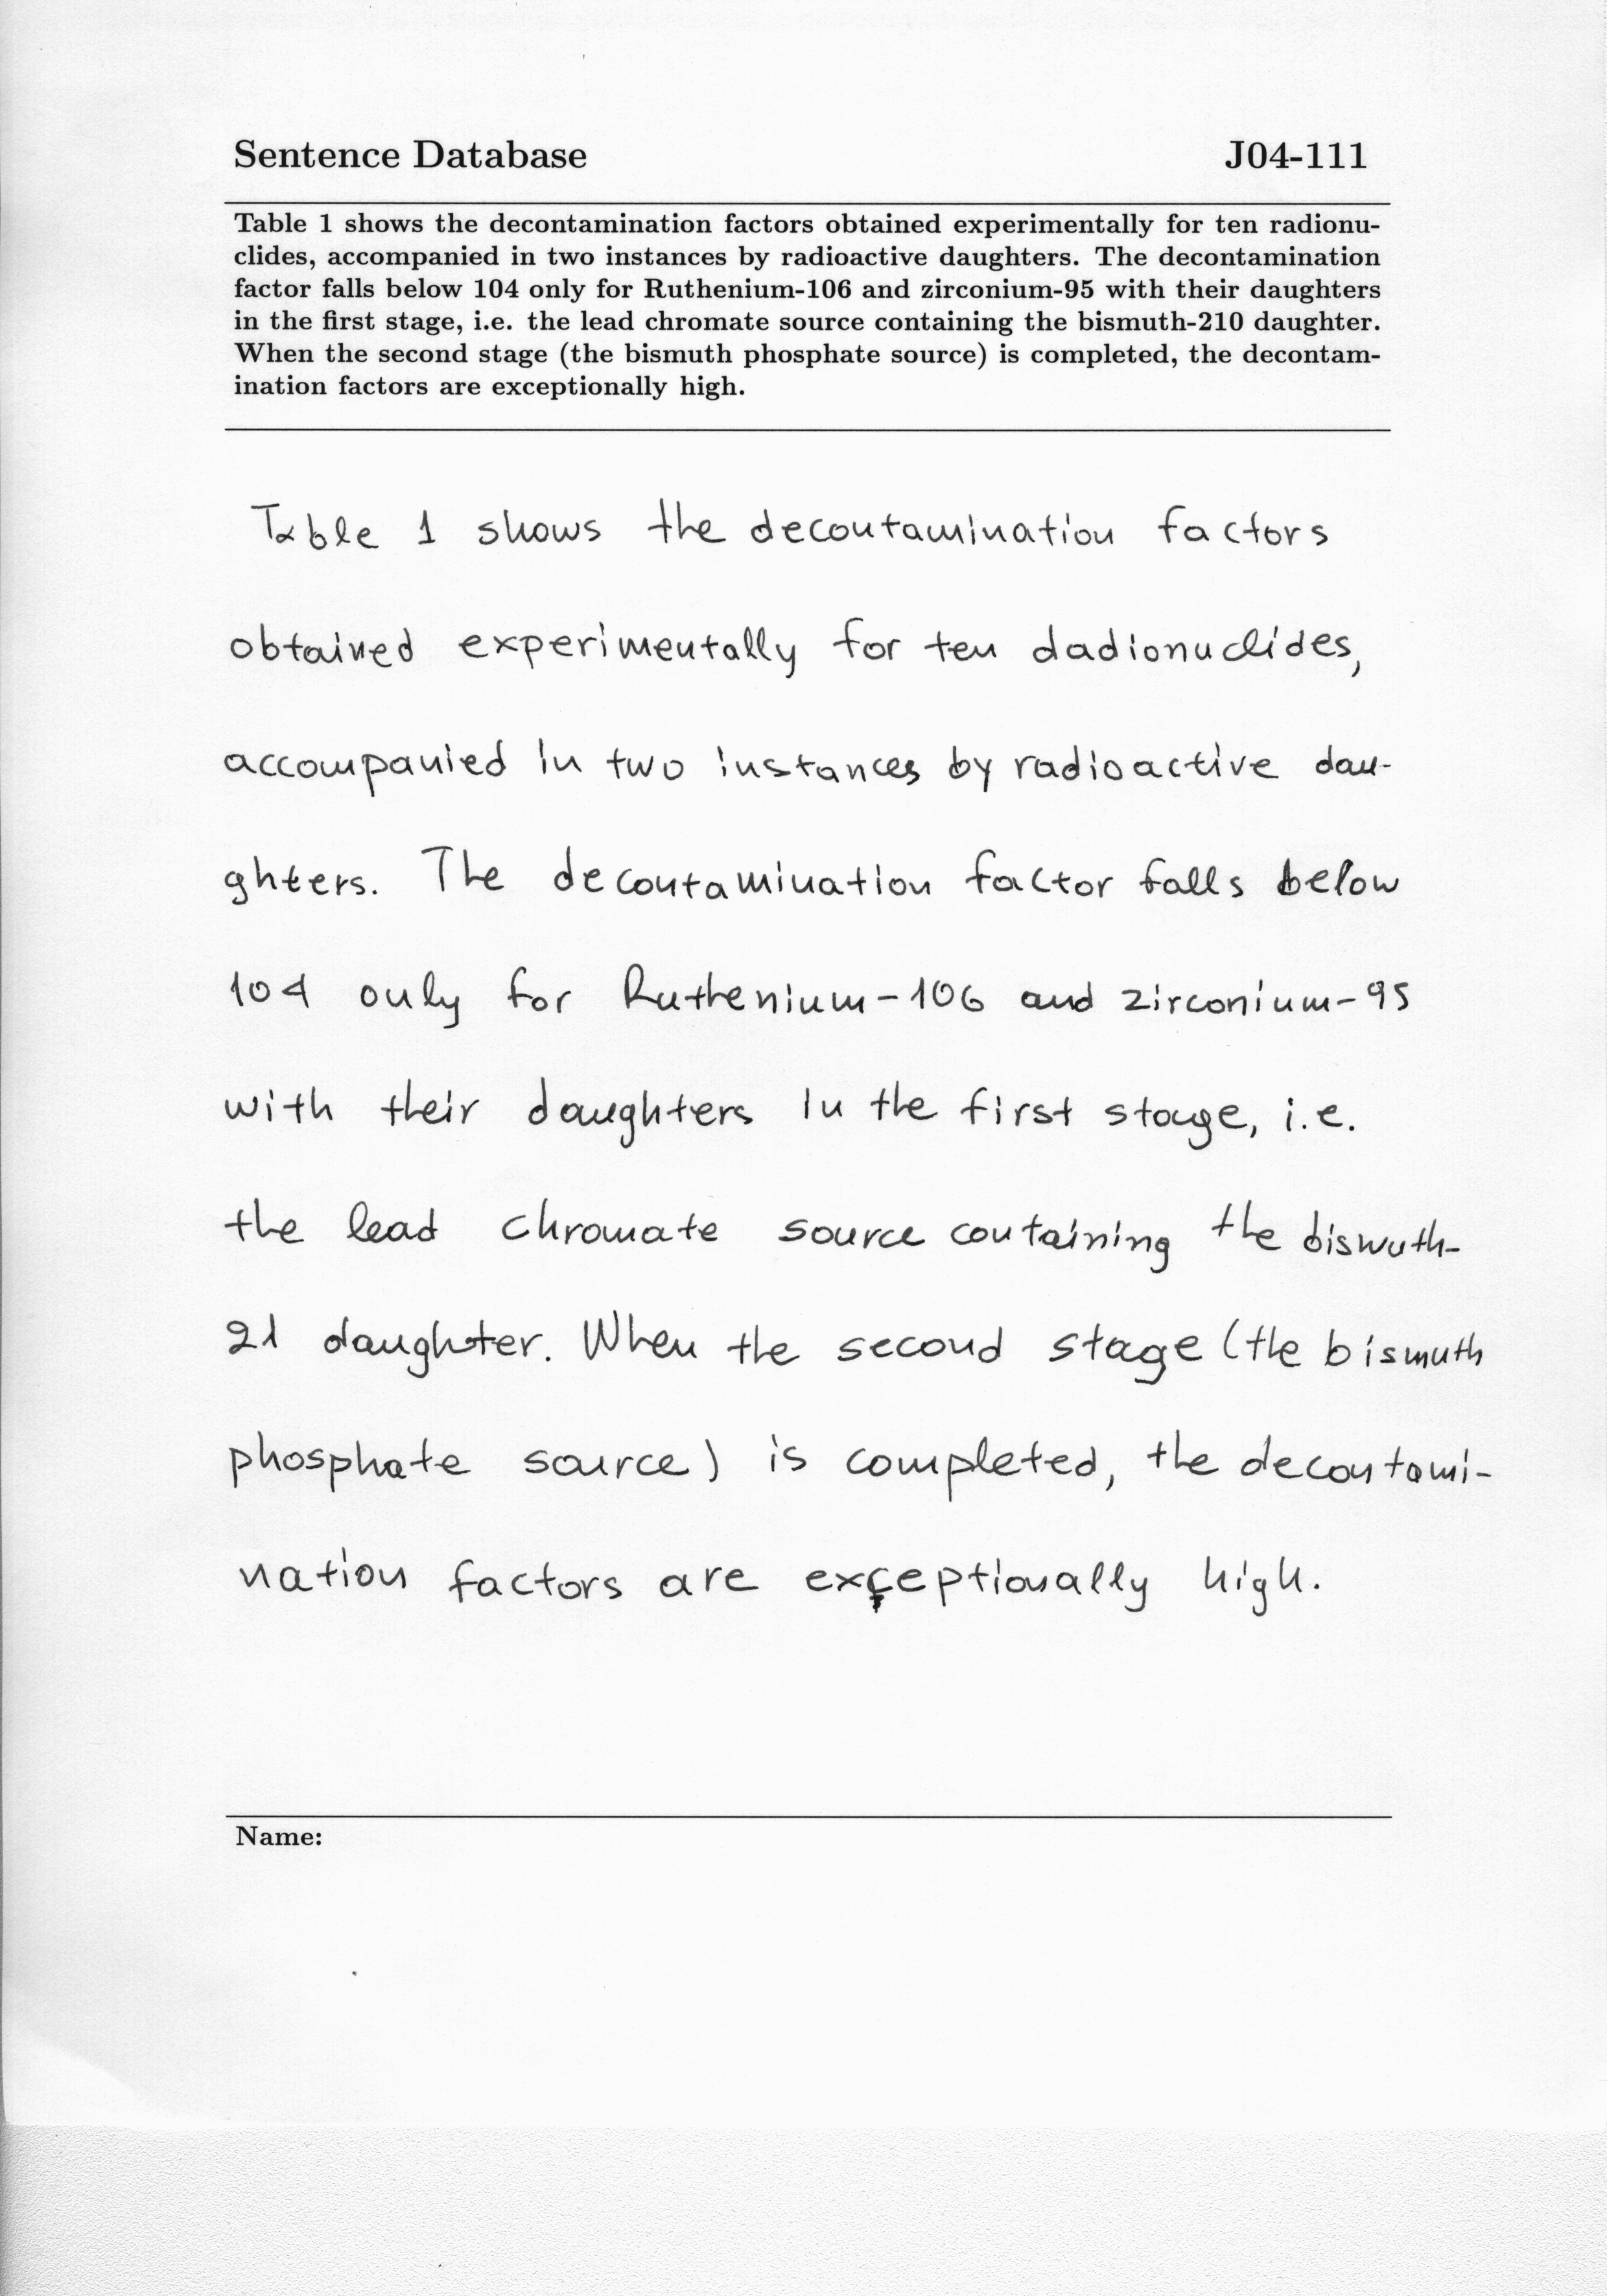 Sentence Database J04-111
Table 1 shows the decontamination factors obtained experimentally for ten radionu-
clides, accompanied in two instances by radioactive daughters. The decontamination
factor falls below 104 only for Ruthenium-106 and zirconium-95 with their daughters
in the first stage, i.e. the lead chromate source containing the bismuth-210 daughter.
When the second stage (the bismuth phosphate source) is completed, the decontam-
ination factors are exceptionally high.
Table 1 shows the decontamination factors
obtained experimentally for ten dadionuclides,
accompanied in two instances by radioactive dau-
ghters. The decontamination factor falls below
104 only for Ruthenium-106 and zirconium-95
with their daughters in the first stage, i.e.
the lead chromate source containing the bismuth-
21 daughter. When the second stage (the bismuth
phosphate source) is completed, the decontami-
nation factors are exceptionally high.
Name: